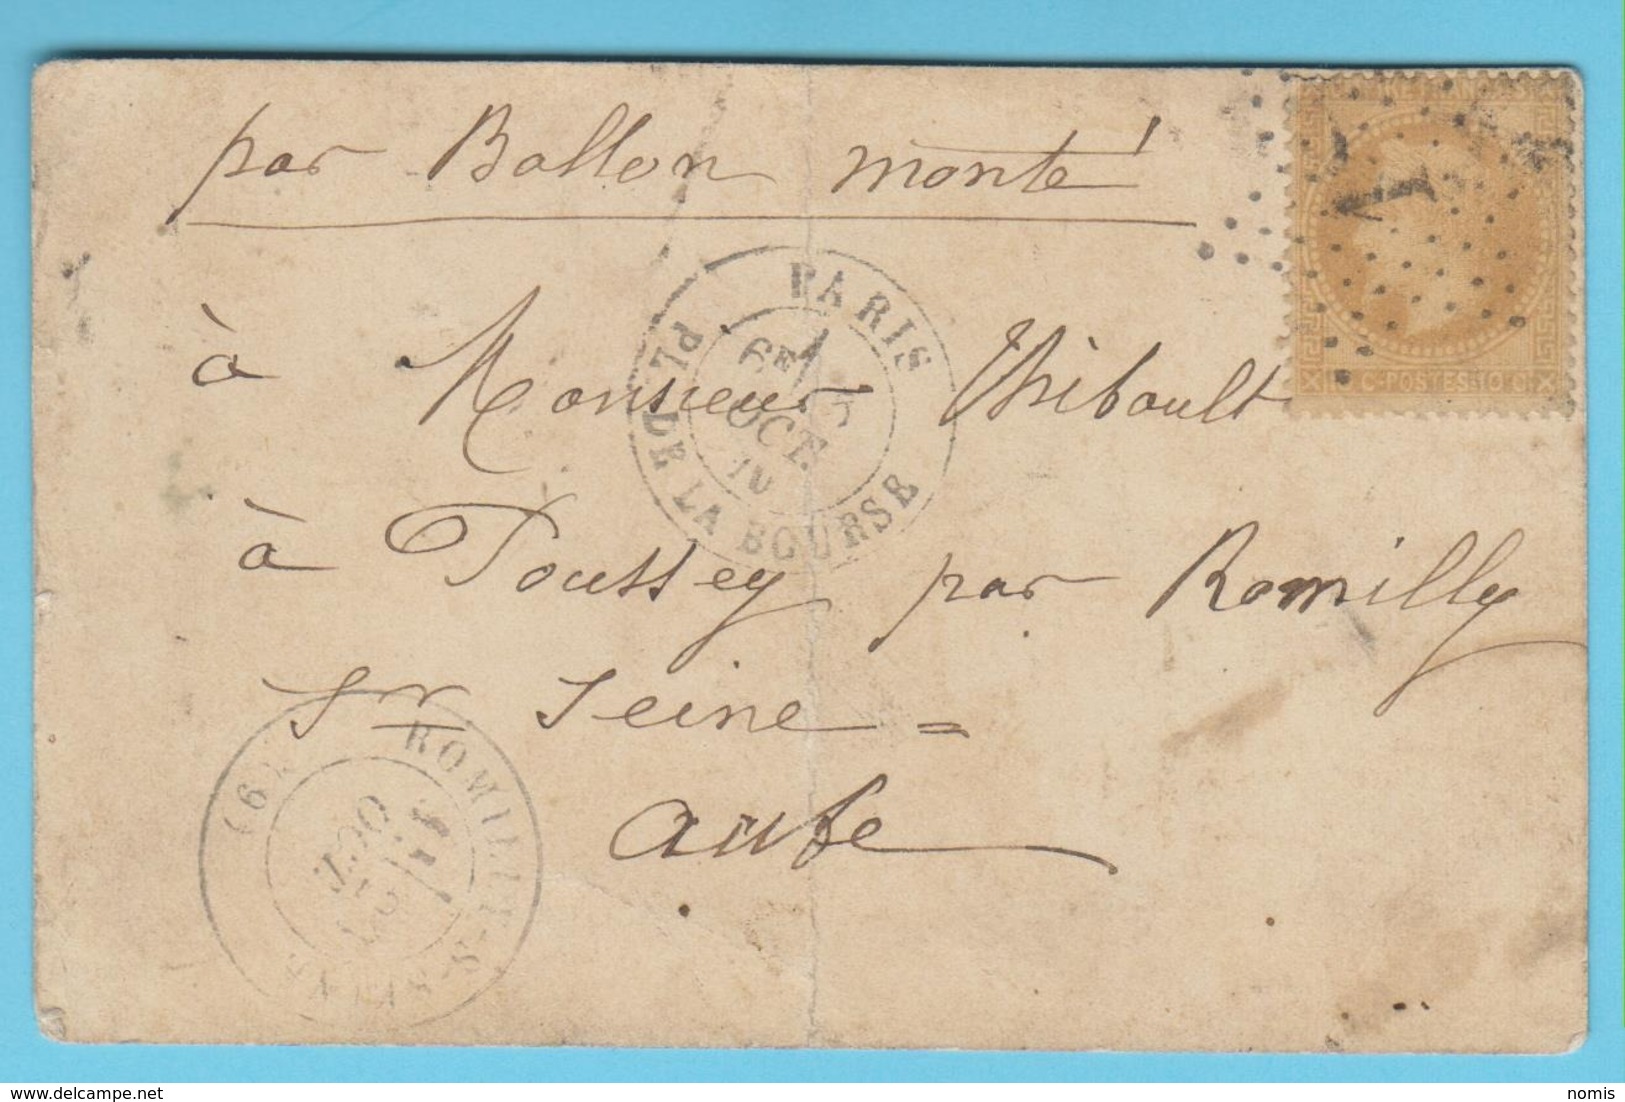 par Ballon monté
EMPIRE FRANÇAIS
1
C-POSTES-10 C
PARIS
6E
OCT.
70
PL. DE LA BOURSE
à Monsieur Thibault
à Poussey par Romilly
Sr Seine =
aube
ROMILLY-S-SEINE
OCT.
delcampe.net
nomis